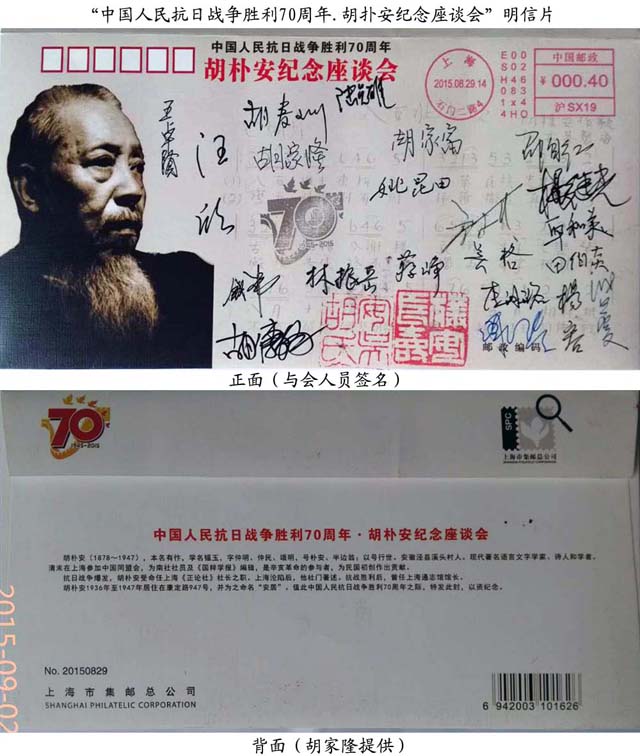 “中国人民抗日战争胜利70周年.胡扑安纪念座谈会”明信片
中国人民抗日战争胜利70周年
胡朴安纪念座谈会
上海
2015.08.29.14
石门二路4
E00
S02
H46
083
1x4
4HO
中国邮政
¥ 000.40
沪SX19
胡春川
胡家隆
胡家富
姚昆田
汪欣
林振岳
蒋峥
吴格
田伯炎
杨容
70
1945-2015
邮政编码
正面（与会人员签名）
70
1945-2015
SPC
上海市集邮总公司
SHANGHAI PHILATELIC CORPORATION
中国人民抗日战争胜利70周年·胡朴安纪念座谈会
胡朴安（1878～1947），本名有忭，学名韫玉，字仲明、仲民、颂明，号朴安、半边翁；以号行世。安徽泾县溪头村人。现代著名语言文字学家、诗人和学者。
清末在上海参加中国同盟会，为南社社员及《国粹学报》编辑，是辛亥革命的参与者，为民国初创作出贡献。
抗日战争爆发，胡朴安受命任上海《正论社》社长之职。上海沦陷后，他杜门著述。抗战胜利后，曾任上海通志馆馆长。
胡朴安1936年至1947年居住在康定路947号，并为之命名“安居”。值此中国人民抗日战争胜利70周年之际，特发此封，以资纪念。
No. 20150829
上海市集邮总公司
SHANGHAI PHILATELIC CORPORATION
6 942003 101626
2015-09-02
背面（胡家隆提供）